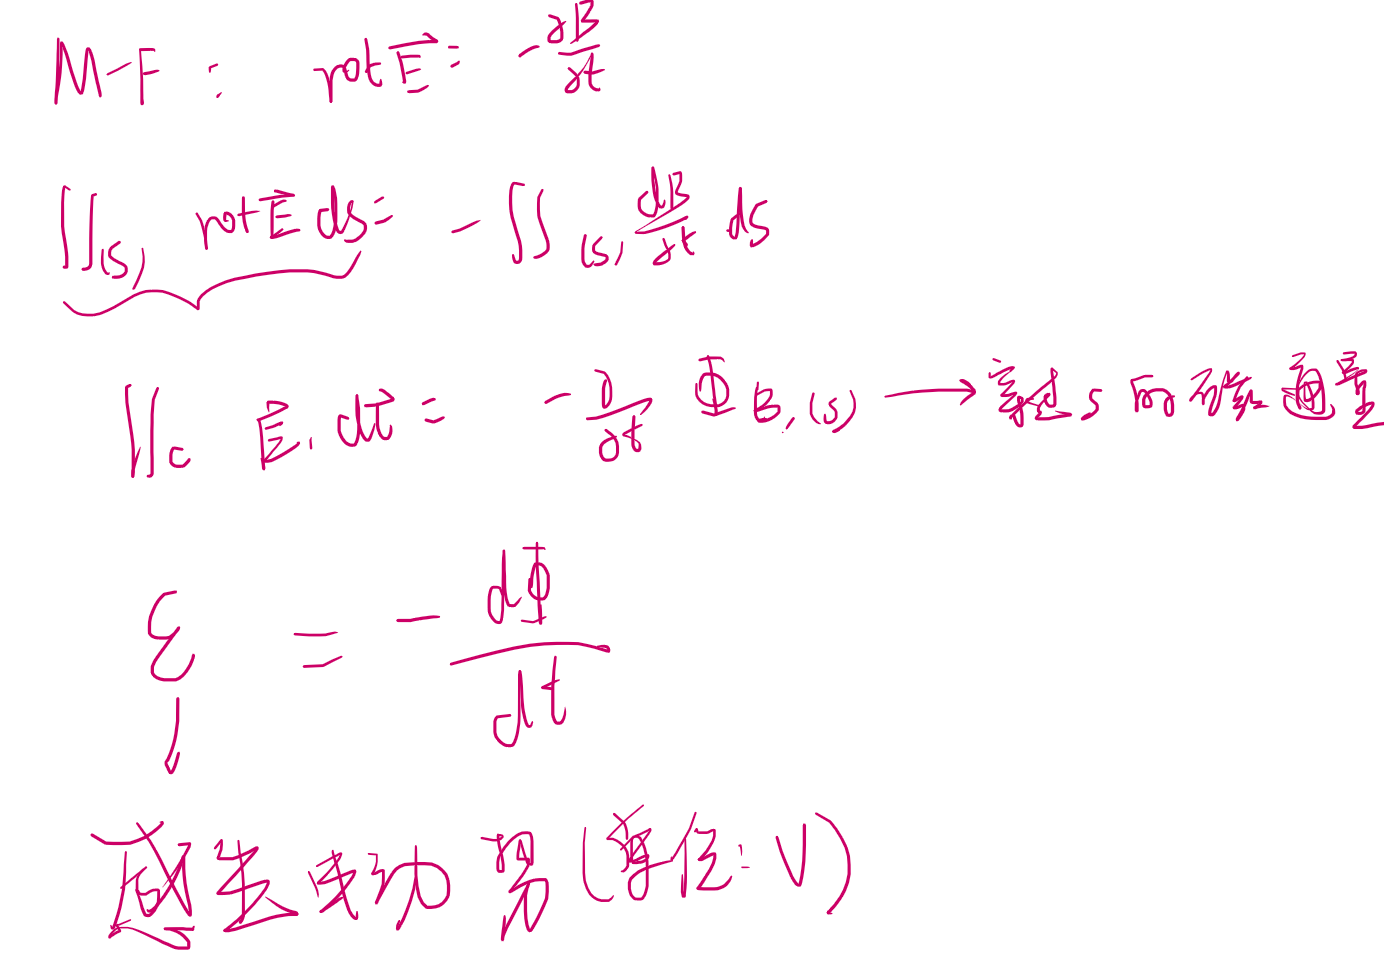 M-F : rot E⃗ = -∂B/∂t
∬(S) rot E⃗ ds = -∬(S) dB/∂t ds
∬c E⃗ . dl⃗ = -∂/∂t Φ B, (S) → 穿过 S 的磁通量
ε = -dΦ/dt
感生电动势 (单位: V)